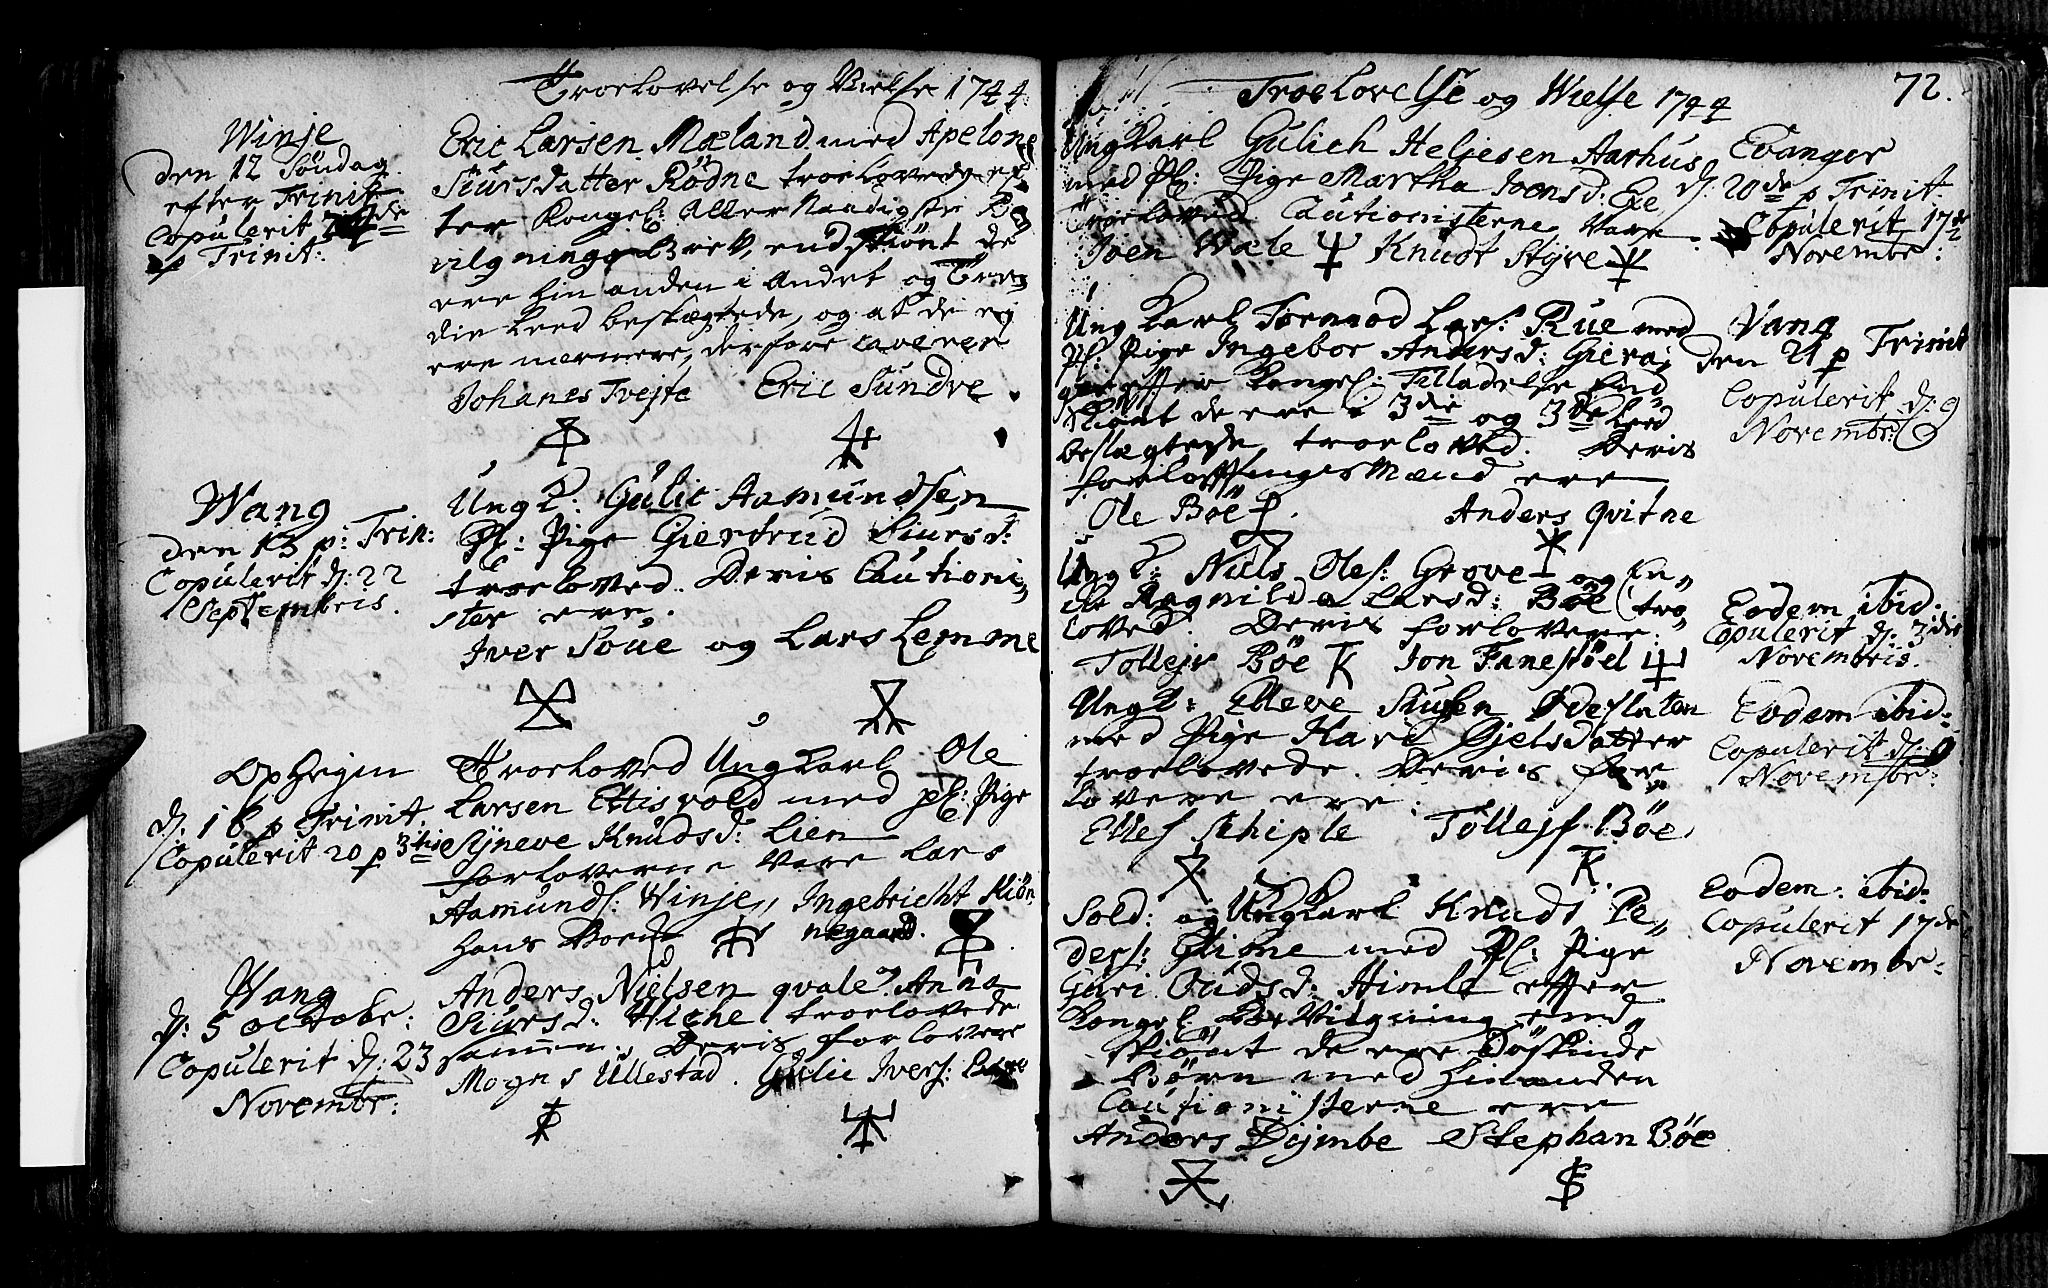 Troelovelse og Vielse 1744.
Winje
den 12 Söndag
efter Trinit
Copulerit
p Trinit:
Eric Larsen Mæland med Apelone
Siursdatter Rödne troelovede ef
ter Kongel: Aller Naadigste Be
vilgnings Brev, endskiönt de
ere hin anden i Andet og Tre
die Leed beslægtede, og at de ey
ere nærmere, derfore caverer
Johanes Tvejte Eric Sundre
Wang
den 13 p: Trin:
Copulerit d: 22
Septembris.
Ungk: Gulic Aamundsen
Pl: Pige Giertrud Siursd:
troeloved. Deris Cautioni„
ster ere.
Iver Soue og Lars Lemme
Ophejm
d: 16 p Trinit.
Copulerit 20 p
Troeloved Ungkarl Ole
Larsen Ettisvold med pl: Pige
Syneve Knudsd: Lien
Forloverne vare Lars
Aamunds: Winje„ Ingebricht Kiön
hans Boemk negaard.
Wang
d: 5 octobr:
Copulerit d: 23
Novembr:
Anders Nielsen qvale Anna
Siursd: Wiche troelovede
samen. Deris forlovere
Mogns Ullestad. Gulic Ivers:
72.
Troelovelse og Wielse 1744
Ungkarl Gulich Heljesen Aarhus
med Pl: Pige Martha Joensd:
Troeloved Cautionisterne vare
Joen Wæle Knudt Styve
Evanger
d: 20de p Trinit
Copulerit 17
Novembr:
Ungkarl Tormod Lars: Rue med
Pl: Pige Ingebor Andersd: Giera„
ger effter Kongel: Tilladelse End„
skiönt de ere i 3die og 3die Leed
beslægtede, troeloved. Deris
forlofftningsmænd ere
Ole Böe Anders qvitne
Vang
den 21 p Trinit
Copulerit d: 9
Novembr:
Ungk: Niels Oles: Grove og En„
ke Ragnilda Larsd: Böe tro„
loved. Deris forlovere:
Tollejv Böe Jon Fanestöel
Eodem ibid.
Copulerit d. 3die
Novembris.
Ungk: Elleve Siursen Ödeslaten
med Pige Kari Gjelsdatter
troelovede. Deris for„
lovere ere:
Ellef Schiple Tollejf Böe
Eodem ibid
Copulerit d: 9
Novembr:
Sold: og Ungkarl Knudt Pe„
ders: Glime med Pl: Pige
Guri Oudsd: Himle effter
Kongel Bevilgning end„
skiönt de ere Söskinde
Börn med hinanden
Cautionisterne ere
Anders Dymbe Stephan Böe
Eodem: ibid:
Copulerit 17de
Novembr: